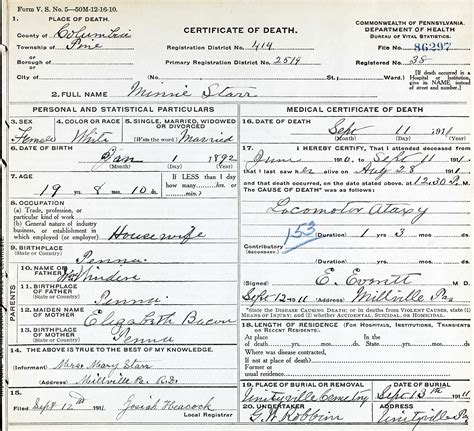 Form V. S. No. 5—50M-12-16-10.
1. PLACE OF DEATH.
County of Columbia
Township of Pine
or
Borough of
or
City of
CERTIFICATE OF DEATH.
Registration District No. 414
Primary Registration District No. 2519
COMMONWEALTH OF PENNSYLVANIA.
DEPARTMENT OF HEALTH
BUREAU OF VITAL STATISTICS.
File No. 86297
Registered No. 38
[If death occurred in a Hospital or Institution, give its NAME instead of street and number.]
2. FULL NAME Minnie Starr
PERSONAL AND STATISTICAL PARTICULARS
3. SEX
Female
4. COLOR OR RACE
White
5. SINGLE, MARRIED, WIDOWED OR DIVORCED
(Write the word) Married
6. DATE OF BIRTH
Jan 1 1892
(Month) (Day) (Year)
7. AGE
19 yrs. 8 mos. 10 ds.
IF LESS than 1 day
8. OCCUPATION
(a) Trade, profession, or particular kind of work
(b) General nature of industry, business, or establishment in which employed (or employer)
Housewife
9. BIRTHPLACE
(State or Country)
Penna
PARENTS
10. NAME OF FATHER
11. BIRTHPLACE OF FATHER
(State or Country)
Penna
12. MAIDEN NAME OF MOTHER
Elizabeth
13. BIRTHPLACE OF MOTHER
(State or Country)
Penna
14. THE ABOVE IS TRUE TO THE BEST OF MY KNOWLEDGE.
Mrs. Mary Starr
Millville Pa. R.D.
15.
Filed Sept 12th 1911 Josiah Heacock
Local Registrar
MEDICAL CERTIFICATE OF DEATH
16. DATE OF DEATH
Sept 11 1911
(Month) (Day) (Year)
17. I HEREBY CERTIFY, That I attended deceased from
June 1910, to Sept 11 1911
that I last saw her alive on Aug 28 1911
and that death occurred, on the date stated above, at 12.30 P.M.
The CAUSE OF DEATH* was as follows:
Locomotor Ataxy
153
(Duration) 1 yrs. 3 mos. ds.
Contributory
(SECONDARY)
(Duration) yrs. mos. ds.
(Signed) E. Everett M.D.
Sept 12 1911 (Address) Millville Pa
*State the DISEASE CAUSING DEATH; or, in deaths from VIOLENT CAUSES, state (1) MEANS OF INJURY; and (2) whether ACCIDENTAL, SUICIDAL, or HOMICIDAL.
18. LENGTH OF RESIDENCE (FOR HOSPITALS, INSTITUTIONS, TRANSIENTS OR RECENT RESIDENTS).
Where was disease contracted,
if not at place of death?
Former or
usual residence
19. PLACE OF BURIAL OR REMOVAL
Unityville Cemetery
DATE OF BURIAL
Sept 13th 1911
20. UNDERTAKER
G. W. Robbins
ADDRESS
Unityville Pa